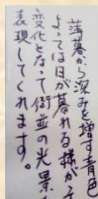 薄暮から深みを増す青色
よっては日が暮れる様がそ
変化となって街並の光景を
表現してくれます。